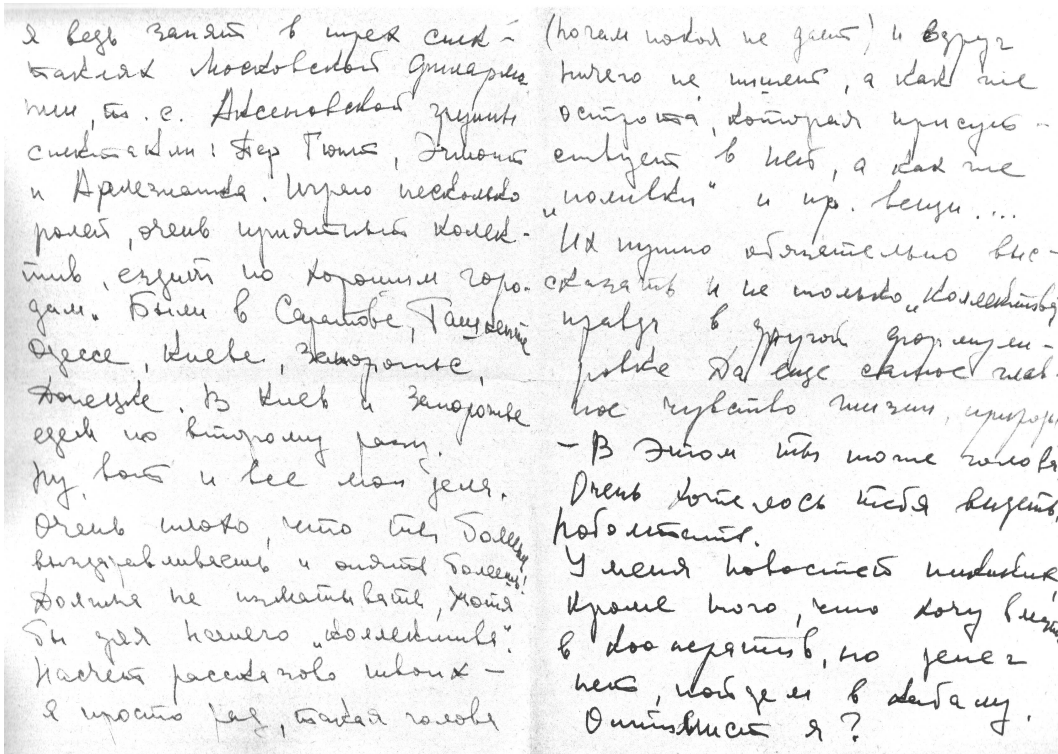 я ведь занят в трех спек-
таклях Московской филармо
нии, т. е. Аксеновской группы
спектакли: Пер Гюнт, Эгмонт
и Арлезианка. Играю несколько
ролей, очень приятный колек-
тив, ездит по хорошим горо-
дам. Были в Саратове, Ташкенте
Одессе, Киеве, Запорожье,
Донецке. В Киев и Запорожье
едем по второму разу.
Ну, вот и все мои дела.
Очень плохо, что ты болеешь,
выздоравливаешь и опять болеешь!
Должна не изматывать, хотя
бы для нашего „коллектива".
Насчет рассказов твоих -
я просто рад, такая голова
(ночам покоя не дает) и вдруг
ничего не пишет, а как же
острота, которая присут-
ствует в ней, а как же
„поливки" и пр. вещи....
Их нужно обязательно выс-
сказать и не только „Коллективу
правда в другой формули-
ровке Да еще самое глав-
ное чувство жизни, природы
- В этом ты тоже голова
Очень хотелось тебя видеть,
поболтать.
У меня новостей никаких,
кроме того, что хочу влезть
в кооператив, но денег
нет, пойдем в кабалу.
Оптимист я?